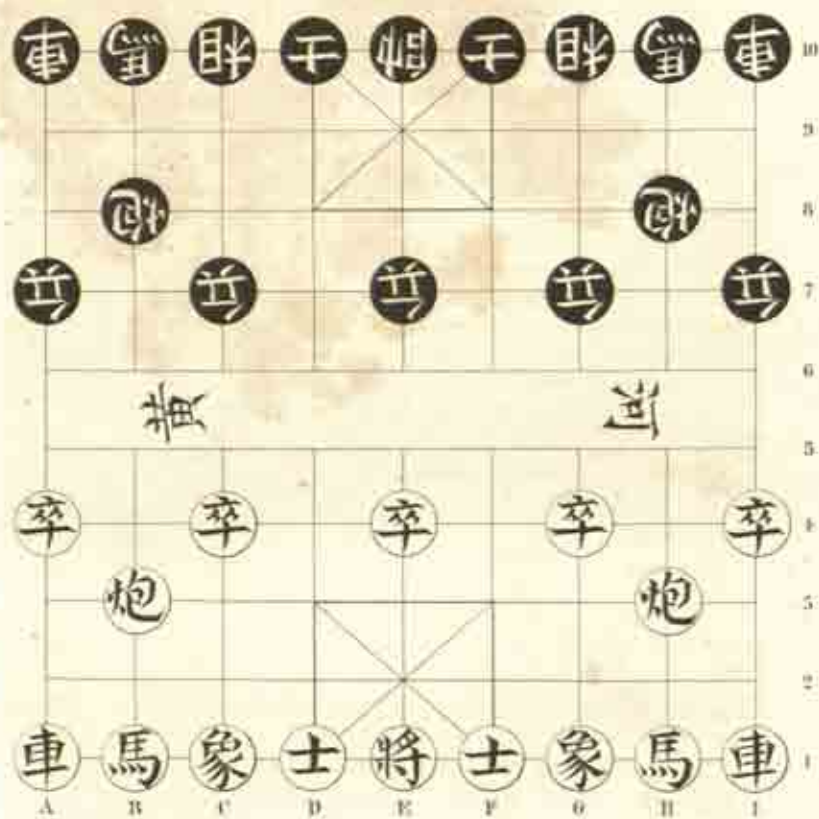 車 馬 相 士 帥 士 相 馬 車 10
9
炮 炮 8
兵 兵 兵 兵 兵 7
6
黃 河
5
卒 卒 卒 卒 卒 4
炮 炮 3
2
車 馬 象 士 將 士 象 馬 車 1
A B C D E F G H I